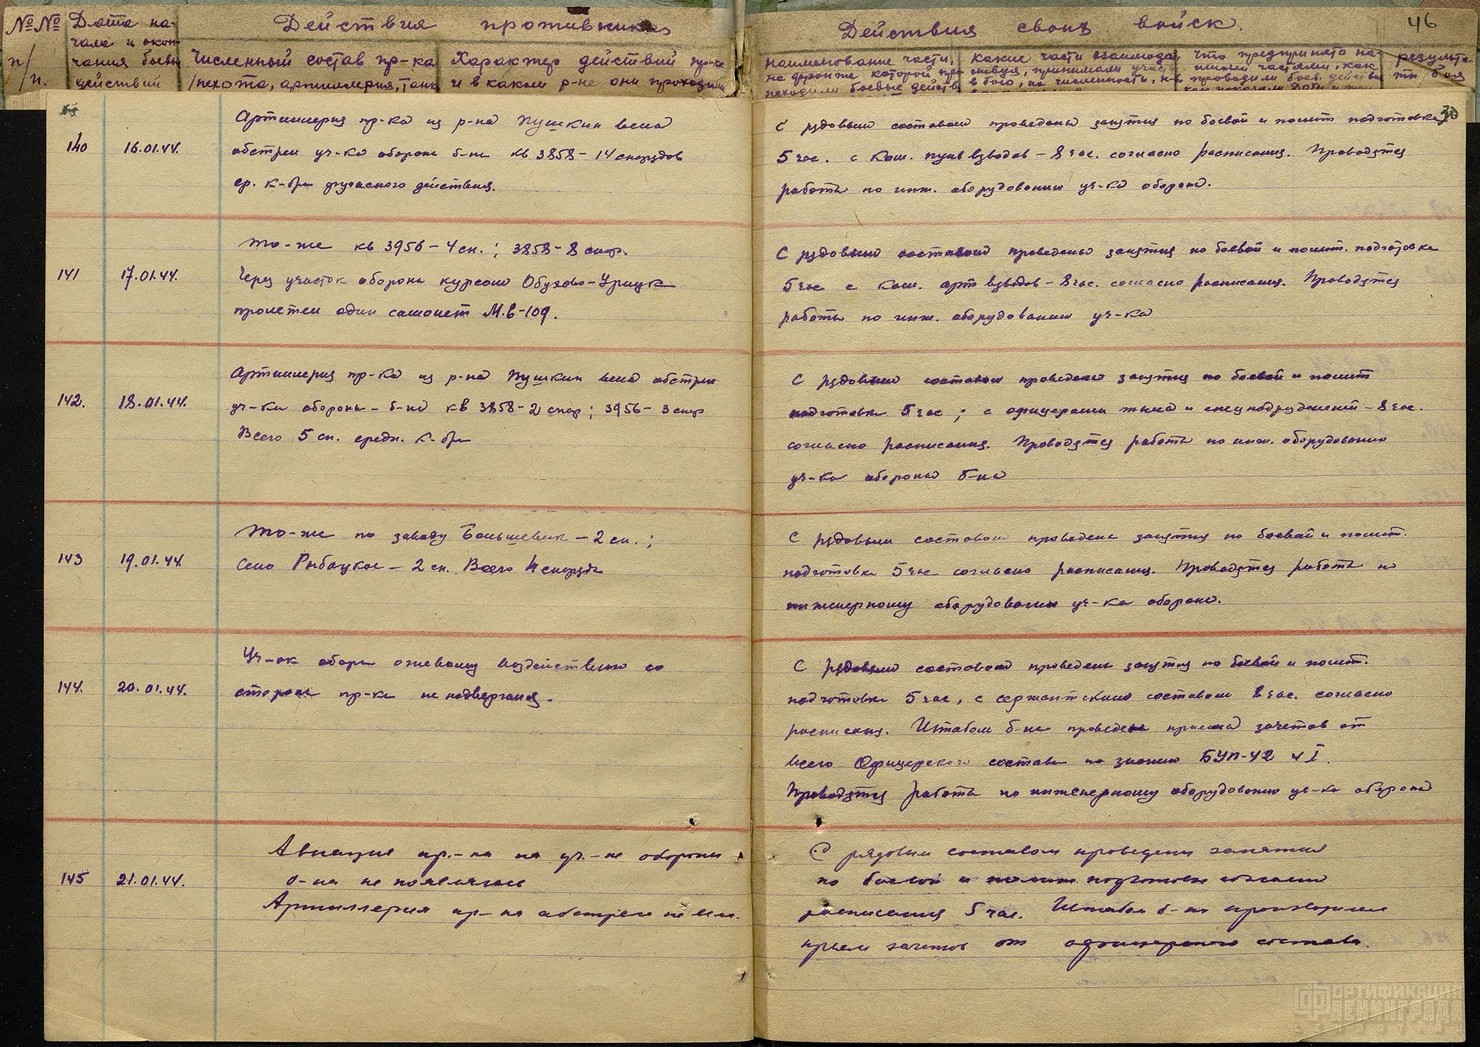 №№ п/п.
Дата начала и окончания боевы действий
Действия противника
Численный состав пр-ка /пехота, артиллерия, танк
Характер действий пр-ка и в каком р-не они проходили
Действия своих войск.
46
наименование части, на фронте которой происходили боевые действ
какие части взаимодействуя, принимали участ в бою, их численность
что предпринято нашими частями, как проводили боев. действ
результаты боя
30
140
16.01.44.
Артиллерия пр-ка из р-на Пушкин вела
обстрел уч-ка обороны б-на кв 3858 – 14 снарядов
ср. к-бра фугасного действия.
С рядовым составом проведены занятия по боевой и полит подготовке
5 час. с ком. пульвзводов – 8 час. согласно расписания. Проводятся
работы по инж. оборудованию уч-ка обороны.
141
17.01.44.
то-же кв 3956 – 4 сн.; 3858 – 8 снар.
Через участок обороны курсом Обухово-Урицк
пролетел один самолет М.Е-109.
С рядовым составом проведены занятия по боевой и полит. подготовке
5 час с ком. арт взводов – 8 час. согласно расписания. Проводятся
работы по инж. оборудованию уч-ка
142.
18.01.44.
Артиллерия пр-ка из р-на Пушкин вела обстрел
уч-ка обороны – б-на кв 3858 – 2 снар; 3956 – 3 снар
Всего 5 сн. средн. к-бра
С рядовым составом проведены занятия по боевой и полит
подготовке 5 час; с офицерами тыла и спецподразделений – 8 час.
согласно расписания. Проводятся работы по инж. оборудованию
уч-ка обороны б-на
143
19.01.44.
то-же по заводу Большевик – 2 сн.;
Село Рыбацкое – 2 сн. Всего 4 снаряда
С рядовым составом проведены занятия по боевой и полит.
подготовке 5 час согласно расписания. Проводятся работы по
инженерному оборудованию уч-ка обороны.
144.
20.01.44.
Уч-ок оборон огневому воздействию со
стороны пр-ка не подвергался.
С рядовым составом проведены занятия по боевой и полит.
подготовке 5 час, с сержантским составом 8 час. согласно
расписания. Штабом б-на проведен приема зачетов от
всего Офицерского состава по знанию БУП-42 ч I.
Проводятся работы по инженерному оборудованию уч-ка обороны
145
21.01.44.
Авиация пр.-ка на уч.-ке обороны
б-на не появлялась
Артиллерия пр-ка обстрел не вела.
С рядовым составом проведены занятия
по боевой и полит подготовке согласно
расписания 5 час. Штабом б-на производился
прием зачетов от офицерского состава.
ФОРТИФИКАЦИЯ
ЛЕНИНГРАДА